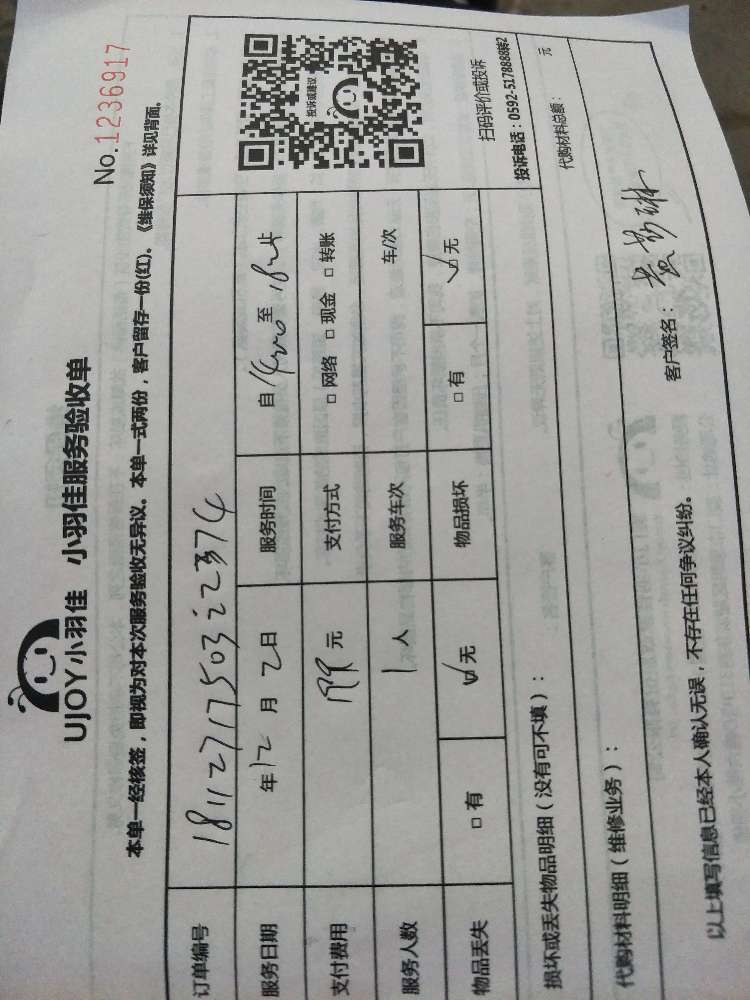 UJOY小羽佳 小羽佳服务验收单
No.1236917
本单一经核签，即视为对本次服务验收无异议。本单一式两份，客户留存一份(红)。《维保须知》详见背面。
订单编号
服务日期 年 12 月 2 日 服务时间 自 至
支付费用 199 元 支付方式 □ 网络 □ 现金 □ 转账
服务人数 1 人 服务车次 车/次
物品丢失 □ 有 □ 无 物品损坏 □ 有 □ 无
投诉或建议
扫码评价或投诉
投诉电话：0592-5178888转2
损坏或丢失物品明细（没有可不填）：
代购材料明细（维修业务）： 代购材料总额： 元
以上填写信息已经本人确认无误，不存在任何争议纠纷。 客户签名：